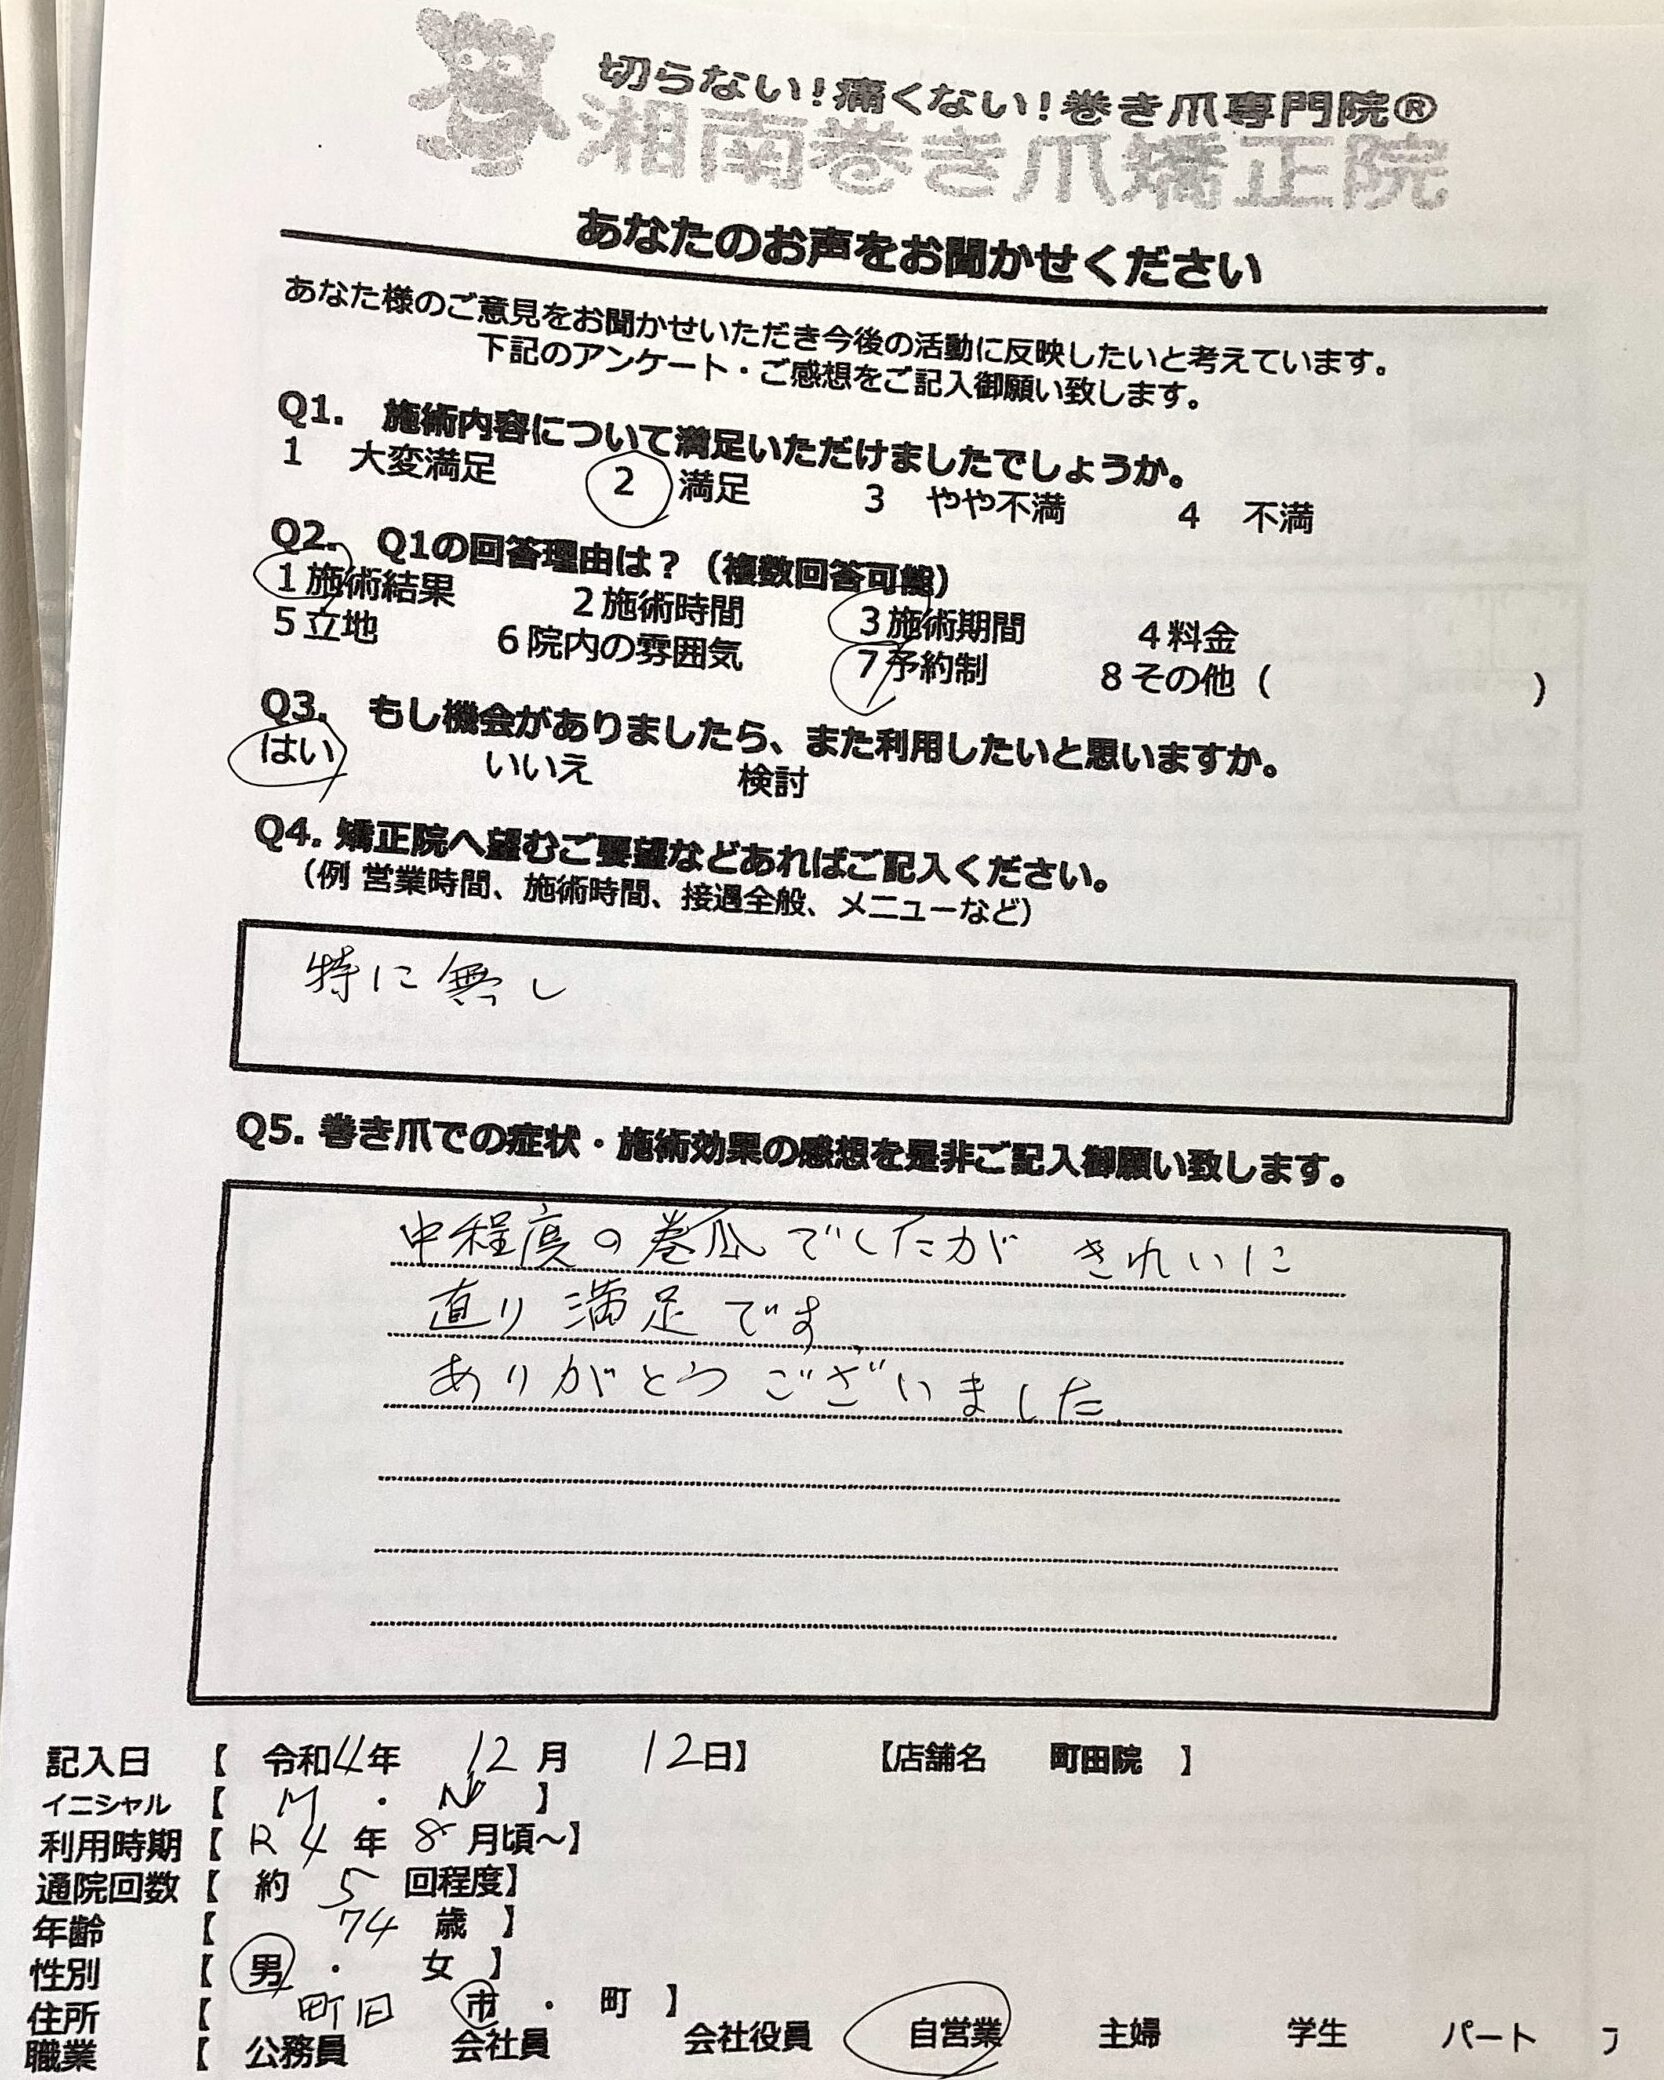 切らない!痛くない!巻き爪専門院®
湘南巻き爪矯正院
あなたのお声をお聞かせください
あなた様のご意見をお聞かせいただき今後の活動に反映したいと考えています。
下記のアンケート・ご感想をご記入御願い致します。
Q1. 施術内容について満足いただけましたでしょうか。
1 大変満足 2 満足 3 やや不満 4 不満
Q2. Q1の回答理由は?(複数回答可能)
1施術結果 2施術時間 3施術期間 4料金
5立地 6院内の雰囲気 7予約制 8その他( )
Q3. もし機会がありましたら、また利用したいと思いますか。
はい いいえ 検討
Q4. 矯正院へ望むご要望などあればご記入ください。
(例 営業時間、施術時間、接遇全般、メニューなど)
特に無し
Q5. 巻き爪での症状・施術効果の感想を是非ご記入御願い致します。
中程度の巻爪でしたが きれいに
直り満足です
ありがとうございました.
記入日 【 令和4年 12月 12日】 【店舗名 町田院 】
イニシャル 【 M ・ N 】
利用時期【 R4年 8月頃~】
通院回数【 約 5 回程度】
年齢 【 74 歳 】
性別 【 男 ・ 女 】
住所 【 町田 市 ・ 町 】
職業 【 公務員 会社員 会社役員 自営業 主婦 学生 パート